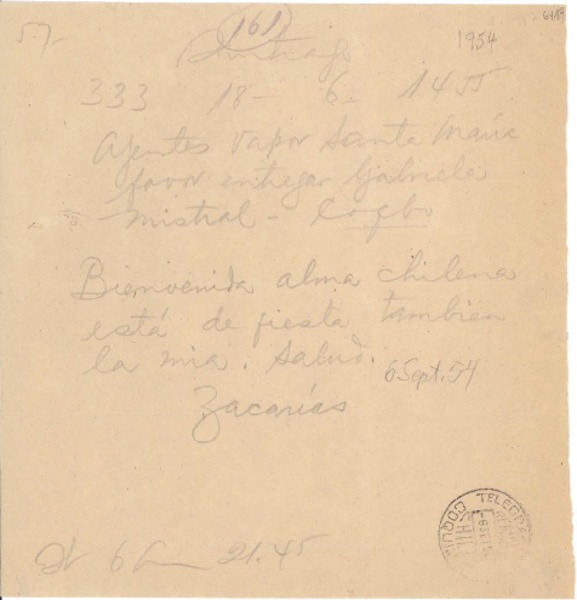 57
(161)
1954
Santiago
333 18- 6- 1455
Agentes vapor Santa María
favor entregar Gabriela
Mistral - Coqbo
Bienvenida alma chilena
está de fiesta también
la mia. Salud.
6 Sept. 54
Zacarías
6 21.45
TELEGRA
COQUIM
CHILE